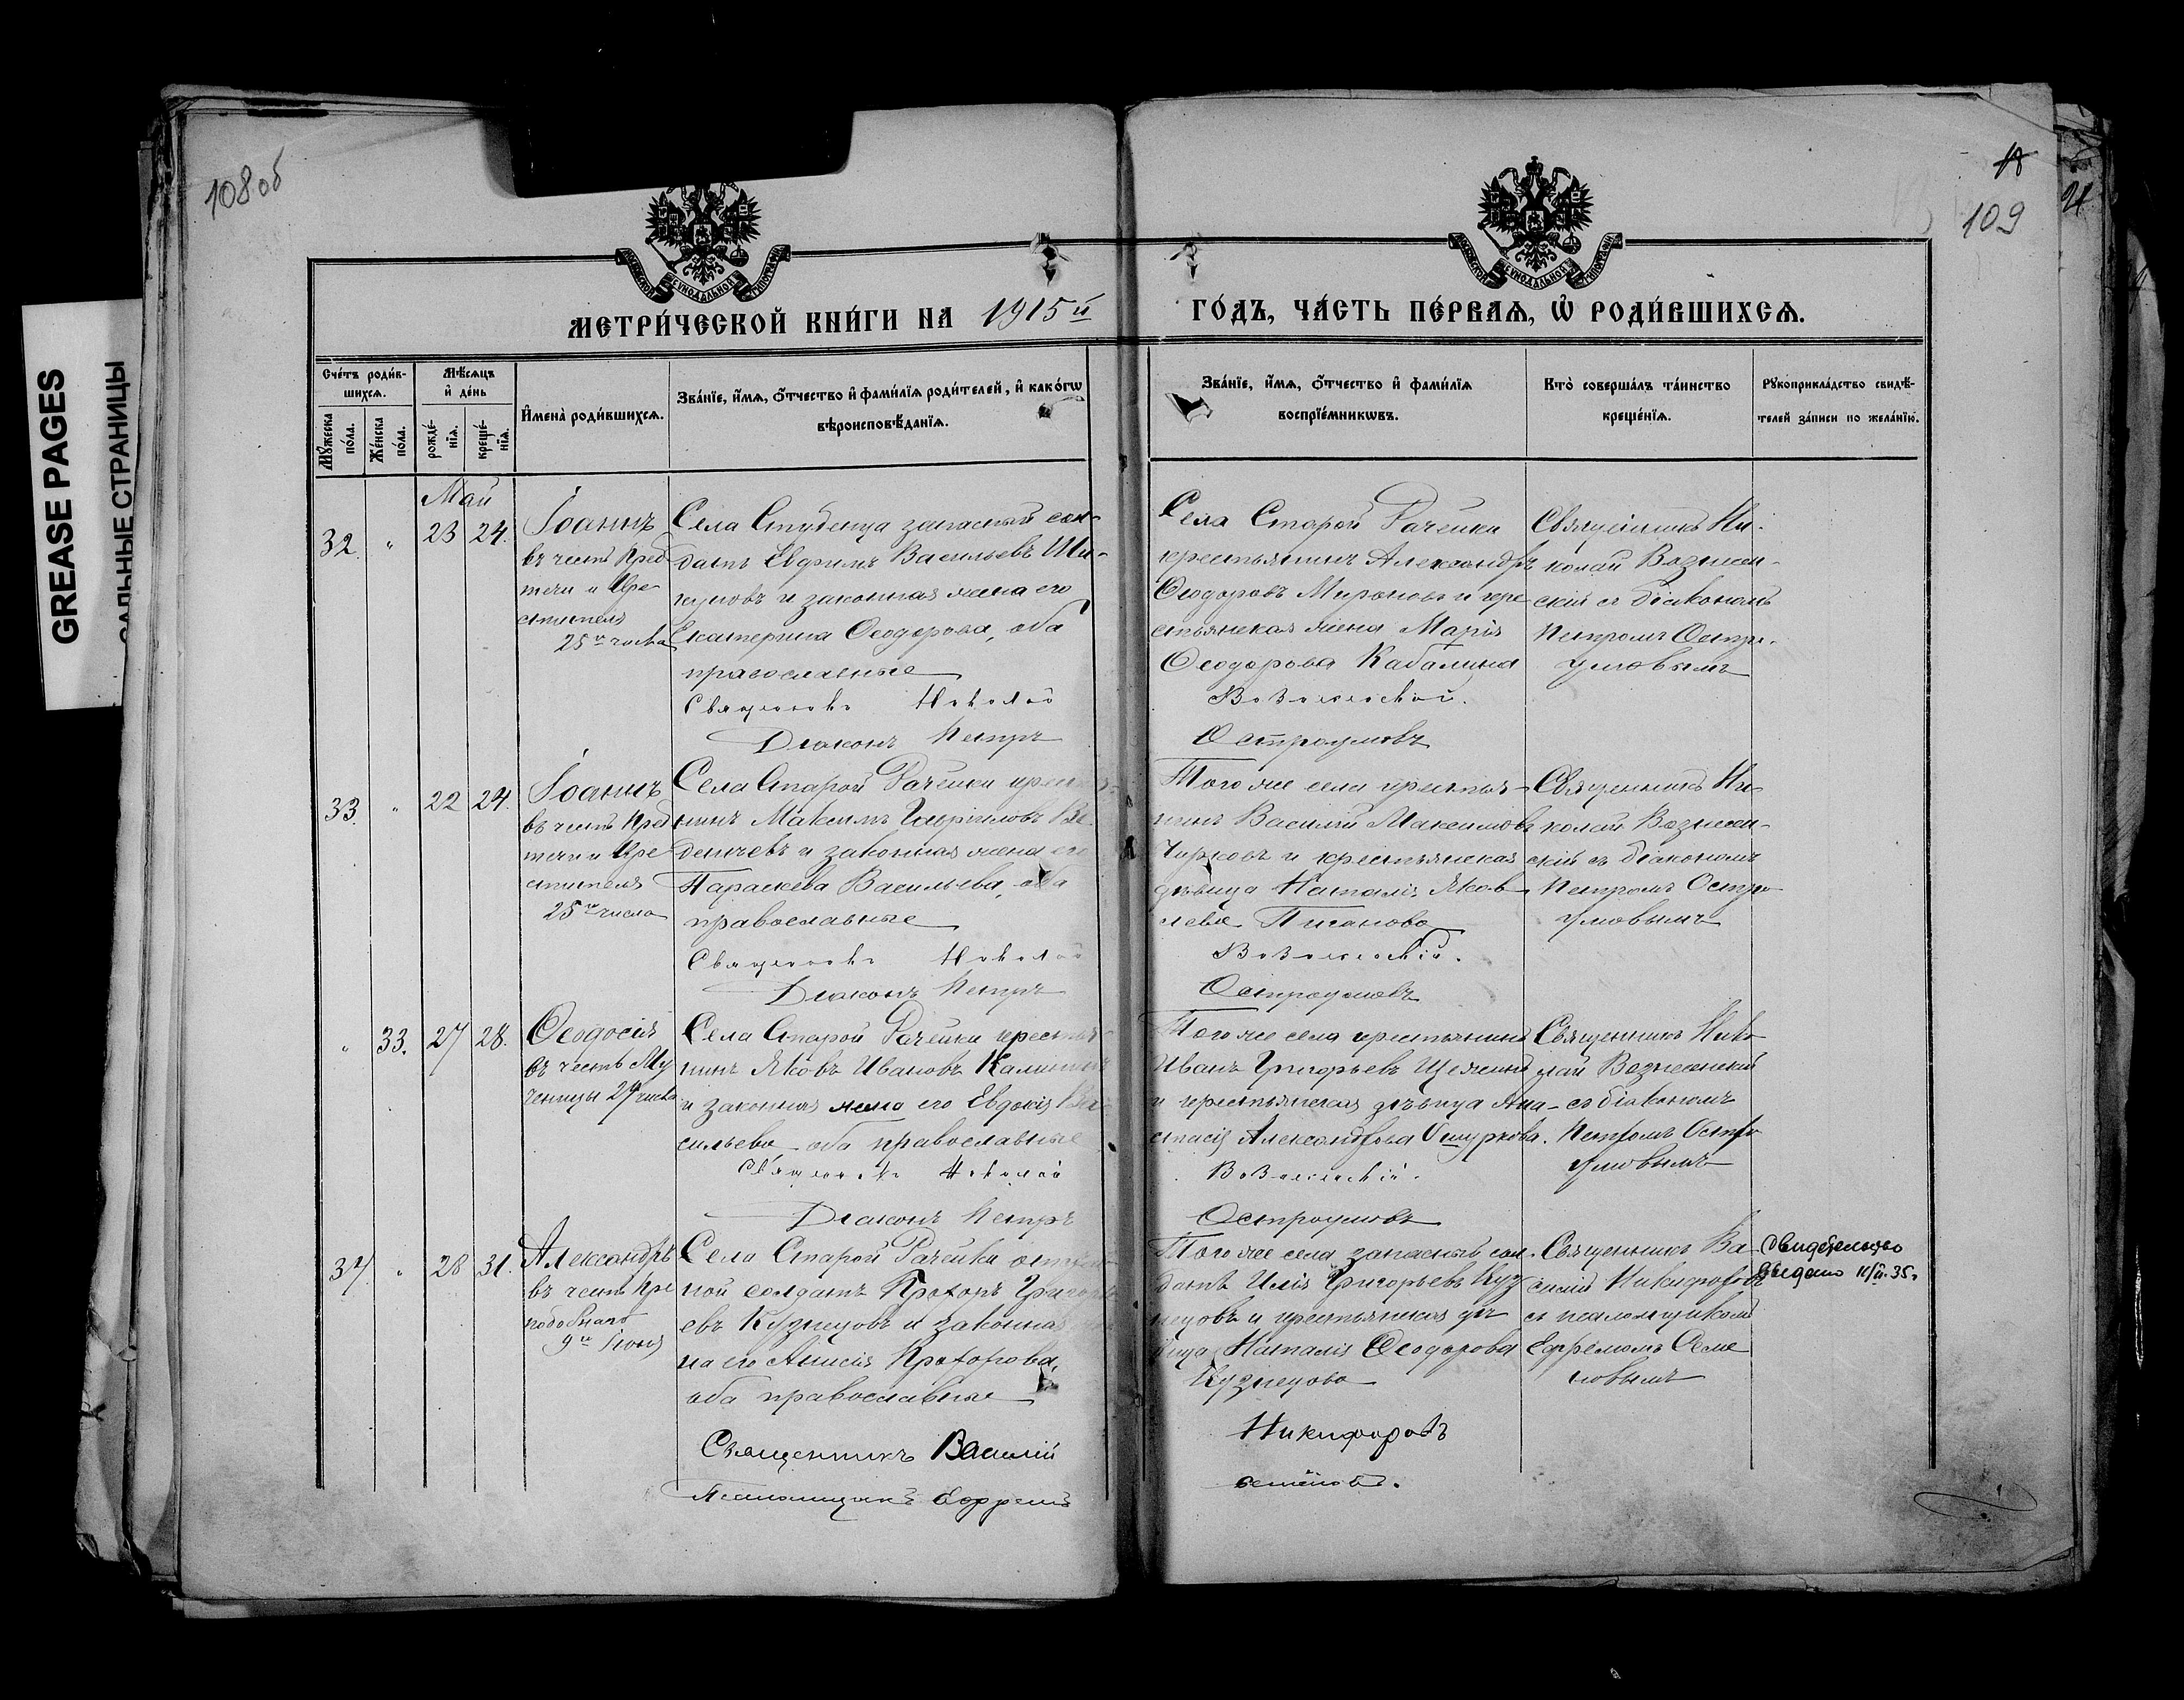 GREASE PAGES
САЛЬНЫЕ СТРАНИЦЫ
108 об
18
109
21
МОСКОВСКОЙ СѴНОДАЛЬНОЙ ТИПОГРАФІИ
МОСКОВСКОЙ СѴНОДАЛЬНОЙ ТИПОГРАФІИ
МЕТРИ́ЧЕСКОЙ КНИ́ГИ НА 1915й
ГО́ДЪ, ЧА́СТЬ ПЕ́РВАѦ, Ѡ҆ РОДИ́ВШИХСѦ.
Сче́тъ роди́в-
шихсѧ.
Мꙋ́жеска
по́ла.
Же́нска
по́ла.
Мѣ́сѧцъ
и҆ де́нь
рожде́-
нїѧ.
креще́-
нїѧ.
И҆мена̀ роди́вшихсѧ.
Зва́нїе, и҆́мѧ, ѻ҆́тчество и҆ фами́лїѧ роди́телей, и҆ како́гѡ
вѣроисповѣ́данїѧ.
Зва́нїе, и҆́мѧ, ѻ҆́тчество и҆ фами́лїѧ
воспрїе́мникѡвъ.
Кто̀ соверша́лъ та́инство
креще́нїѧ.
Рꙋкоприкла́дство свидѣ́-
телей за́писи по жела́нїю.
Май
32. " 23 24.
Іоаннъ
въ честь Пред
течи и Кре
стителя
25го числа
Села Студенца запасный сол-
датъ Евфимъ Васильевъ
и законная жена его
Екатерина Ѳеодорова, оба
православные
Священникъ Николай
Діаконъ Петръ
Села Старой Рачейки
крестьянинъ Александръ
Ѳеодоровъ Мироновъ и кре
стьянская жена Марія
Ѳеодорова Кабалина
Вознесенскій.
Остроумовъ
Священникъ Ни-
колай Вознесен-
скій съ діакономъ
Петромъ Остро-
умовымъ
33. " 22 24.
Іоаннъ
въ честь Пред
течи и Кре
стителя
25го числа
Села Старой Рачейки крестья-
нинъ Максимъ Гавріиловъ Ве
деничевъ и законная жена его
Параскева Васильева, оба
православные
Священникъ Николай
Діаконъ Петръ
Того же села крестья-
нинъ Василій Максимовъ
Чирковъ и крестьянская
дѣвица Наталія Яков-
лева
Вознесенскій.
Остроумовъ
Священникъ Ни-
колай Вознесен-
скій съ діакономъ
Петромъ Остро-
умовымъ
" 33. 27 28.
Ѳеодосія
въ честь Му
ченицы 29 числа
Села Старой Рачейки крестья-
нинъ Яковъ Ивановъ Калининъ
и законная жена его Евдокія Ва-
сильева оба православные
Священникъ Николай
Діаконъ Петръ
Того же села крестьянинъ
Иванъ Григорьевъ
и крестьянская дѣвица Ана-
стасія Александрова Ошуркова.
Вознесенскій.
Остроумовъ
Священникъ Нико
лай Вознесенскій
съ діакономъ
Петромъ Остро
умовымъ
34. " 28 31.
Александръ
въ честь Пре
подобнаго
9го Іюня
Села Старой Рачейки
ной солдатъ Прохоръ Григорь
евъ Кузнецовъ и законная
на его Анисія Прохорова,
оба православные
Священникъ Василій
Псаломщикъ Ефремъ
Того же села запасный сол-
датъ Илія Григорьевъ Куз
нецовъ и крестьянская дѣ
вица Наталія Ѳеодорова
Кузнецова
Никифоровъ
Семёновъ.
Священникъ Ва
силій Никифоровъ
съ псаломщикомъ
Ефремомъ Семе
новымъ
Свидетельство
выдано 11/II-35г